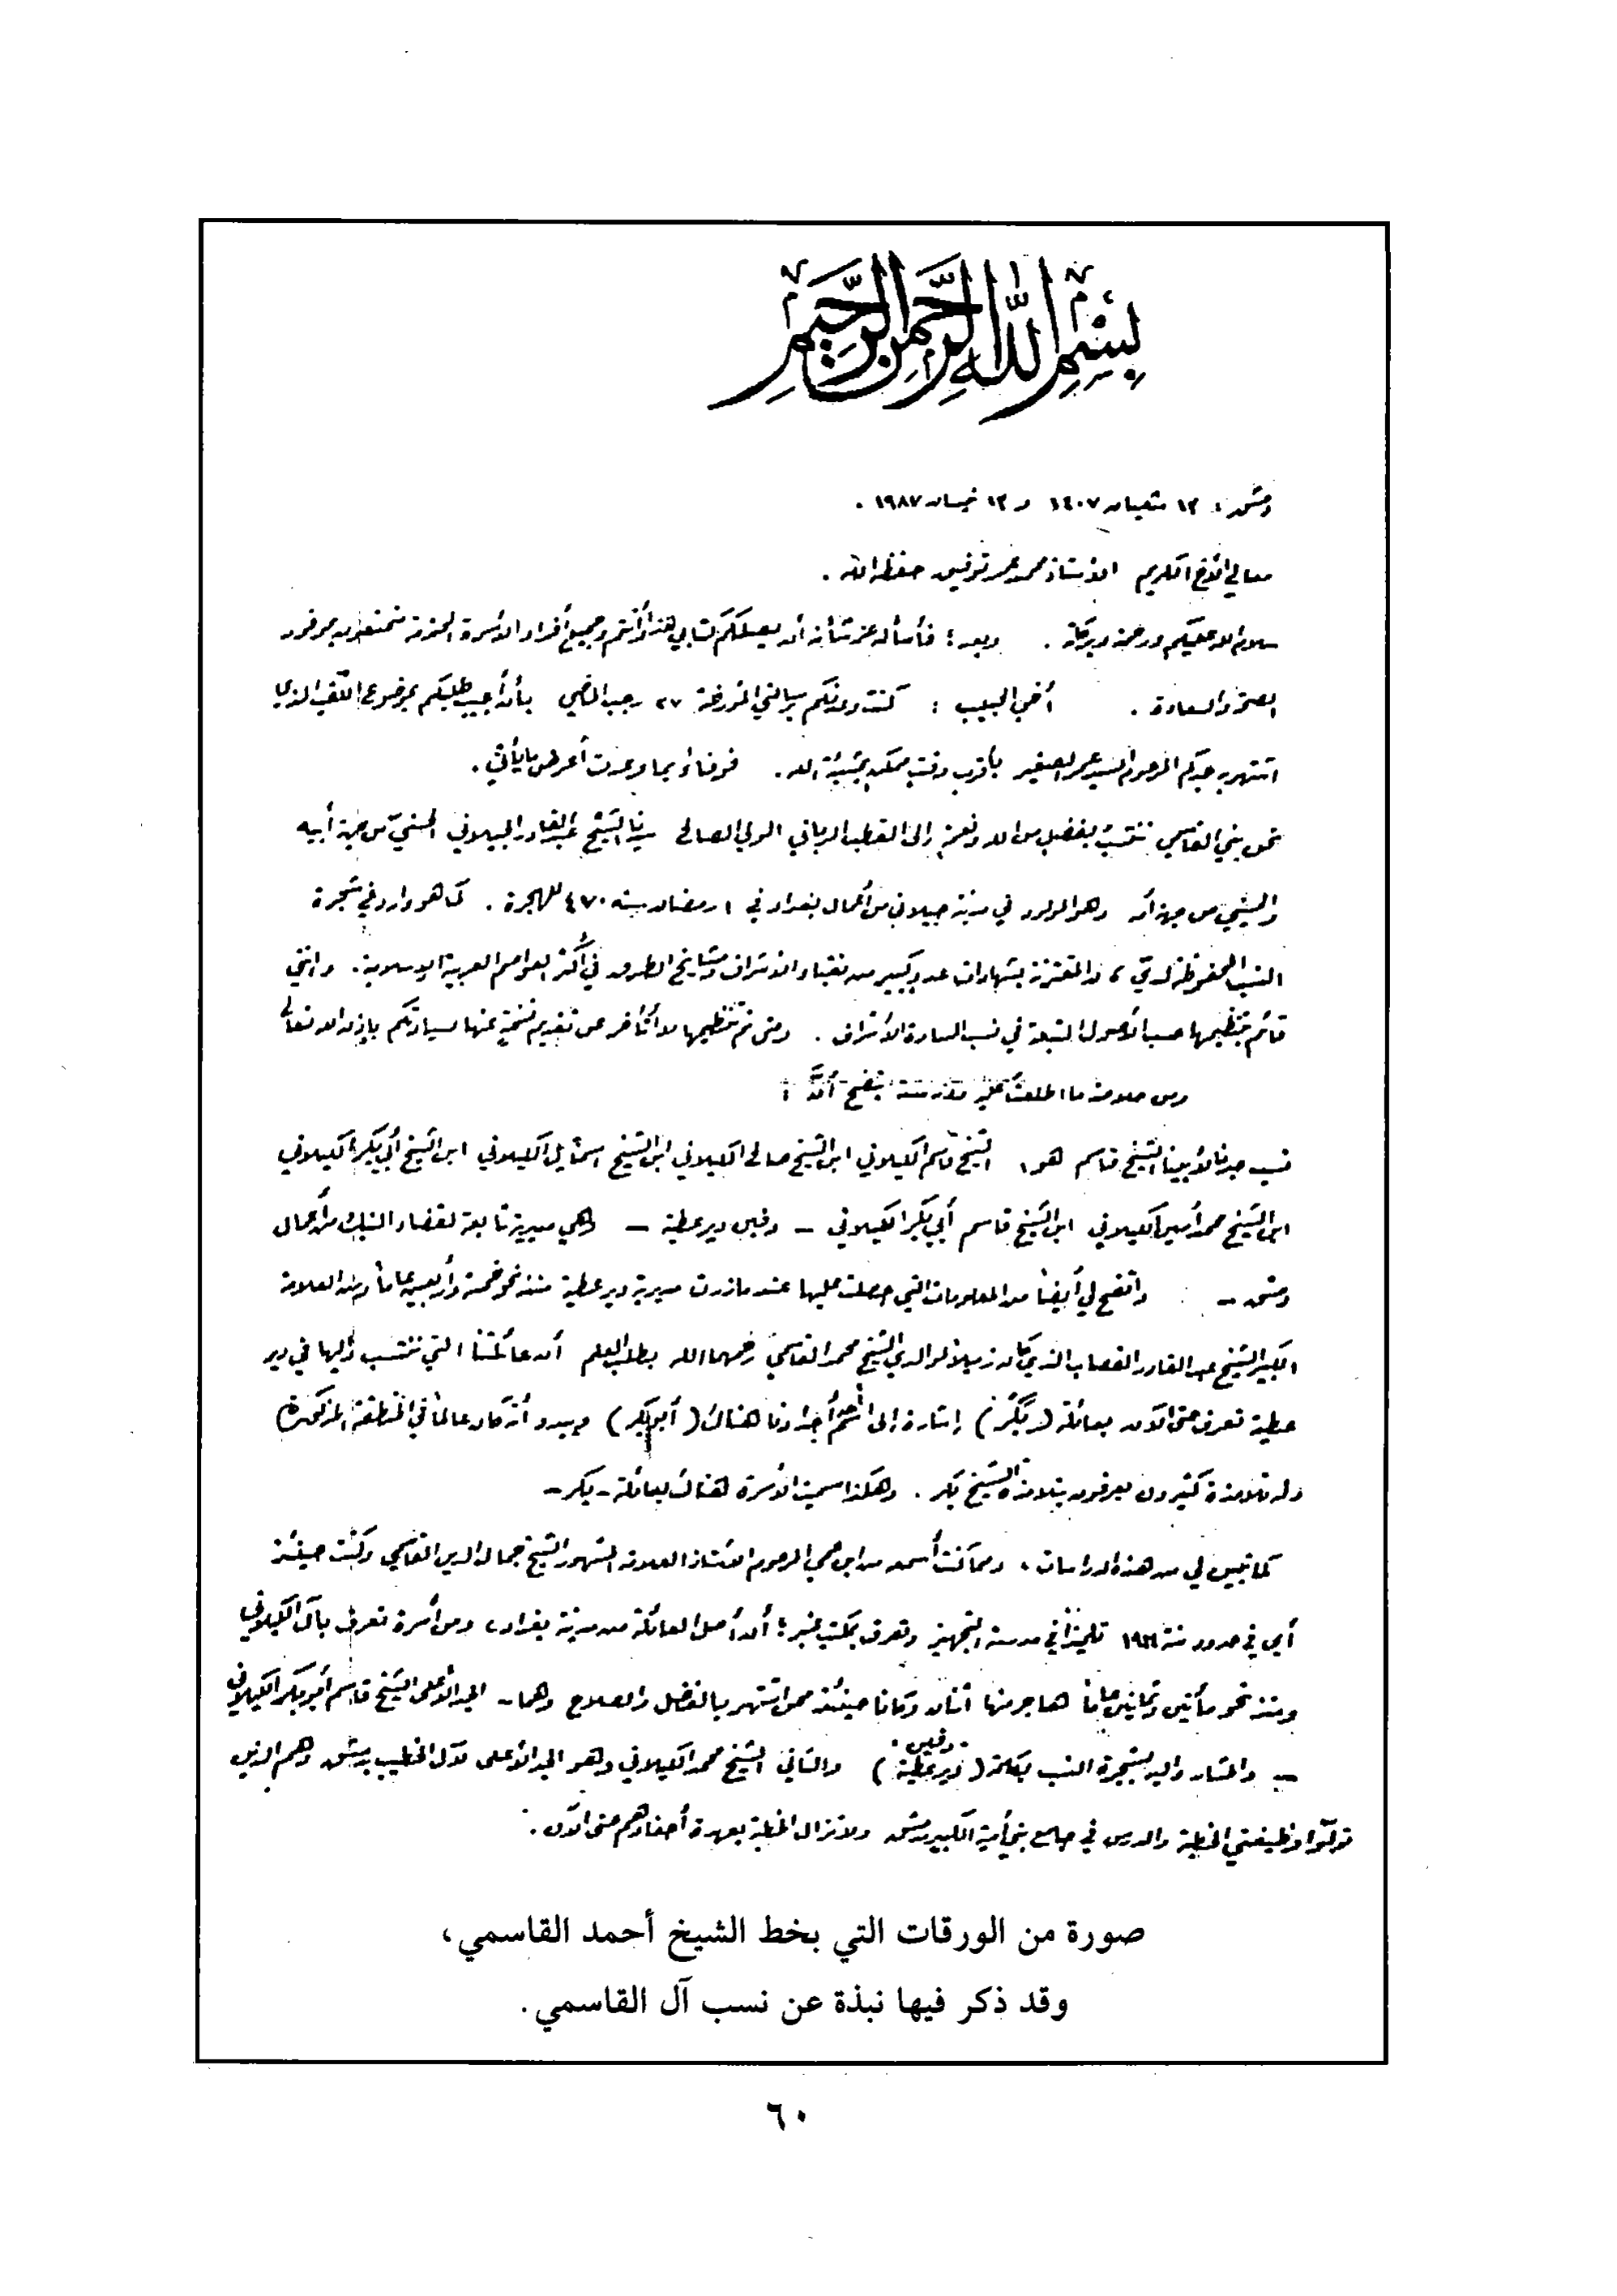 بسم الله الرحمن الرحيم
دمشق: ١٢ شعبان ١٤٠٧ و ١٢ نيسان ١٩٨٧ .
معالي الأخ الكريم الأستاذ محمد عمر توفيق حفظه الله .
سلام الله عليكم ورحمته وبركاته . وبعد ؛ فأسأله عز شأنه أن يصلكم كتابي هذا وأنتم وجميع أفراد الأسرة المحترمة متمتعون بموفور
الصحة والسعادة . أخي الحبيب : كنت وعدتكم برسالتي المؤرخة ٢٧ رجب الماضي بأن أجيب طلبكم بموضوع اللقب الذي
اشتهر به جدكم المرحوم السيد عمر الصغير بأقرب وقت ممكن بمشيئة الله . فوفاءً بما وعدت أعرض ما يأتي .
نحن بني القاسمي ننتسب بفضل من الله ونعمة إلى القطب الرباني الولي الصالح سيدنا الشيخ عبد القادر الجيلاني الحسني من جهة أبيه
والحسيني من جهة أمه وهو المولود في مدينة جيلان من أعمال بغداد في ١ رمضان سنة ٤٧٠ للهجرة . كما هو وارد في شجرة
النسب المحفوظة لدي ، والمقترنة بشهادات عدد كبير من نقباء الأشراف ومشايخ الطرق في أكثر العواصم العربية الإسلامية . وإنني
قائم بتنظيمها حسب الأصول المتبعة في نسب السادة الأشراف . ومتى تم تنظيمها لا أتأخر عن تقديم نسخة عنها لسيادتكم بإذن الله تعالى
ومن خلاصة ما اطلعت عليه يتضح أنَّ :
نسب جدنا لأبينا الشيخ قاسم هو : الشيخ قاسم الكيلاني ابن الشيخ صالح الكيلاني ابن الشيخ اسماعيل الكيلاني ابن الشيخ أبي بكر الكيلاني
ابن الشيخ محمد أمين الكيلاني ابن الشيخ قاسم أبي بكر الكيلاني – دفين دير عطية – وهي مديرية تابعة لقضاء النبك من أعمال
دمشق – واتضح لي أيضاً من المعلومات التي حصلت عليها عندما زرت مديرية دير عطية منذ نحو خمسة وأربعين عاماً وعند العلامة
الكبير الشيخ عبد القادر القصاب الذي كان زميلاً لوالدي الشيخ محمد القاسمي رحمهما الله بطلب العلم أن عائلتنا التي ننتسب إليها في دير
عطية تعرف حتى الآن بعائلة ( بكر ) إشارة إلى اسم أحد أجدادنا هناك ( أبو بكر ) ويبدو أنه كان عالماً في المنطقة المذكورة )
وله تلامذة كثيرون يعرفون بتلامذة الشيخ بكر . وهكذا سميت الأسرة هناك بعائلة - بكر -
كما تبين لي من هذه الدراسات ، ومما كنت أسمعه من ابن عمي المرحوم الأستاذ العلامة المشهور الشيخ جمال الدين القاسمي وكنت حينئذ
أي في حدود سنة تلميذاً في مدرسة التجهيز وتعرف بمكتب عنبر ؛ أن أصل العائلة من مدينة بغداد ، ومن أسرة تعرف بآل الكيلاني
ومنذ نحو مأتين وثمانين عاماً هاجر منها اثنان وكانا حينئذ ممن اشتهر بالفضل والصلاح وهما - الجد الأعلى الشيخ قاسم أبو بكر الكيلاني
– والمشار إليه بشجرة النسب بكلمة ( دفين دير عطية ) والثاني الشيخ محمد الكيلاني وهو الجد الأعلى لآل الخطيب بدمشق وهم الذين
تولّوا وظيفتي الخطبة والدرس في جامع بني أمية الكبير بدمشق ولا تزال الخطبة بعهدة أحفادهم حتى الآن .
صورة من الورقات التي بخط الشيخ أحمد القاسمي،
وقد ذكر فيها نبذة عن نسب آل القاسمي.
٦٠